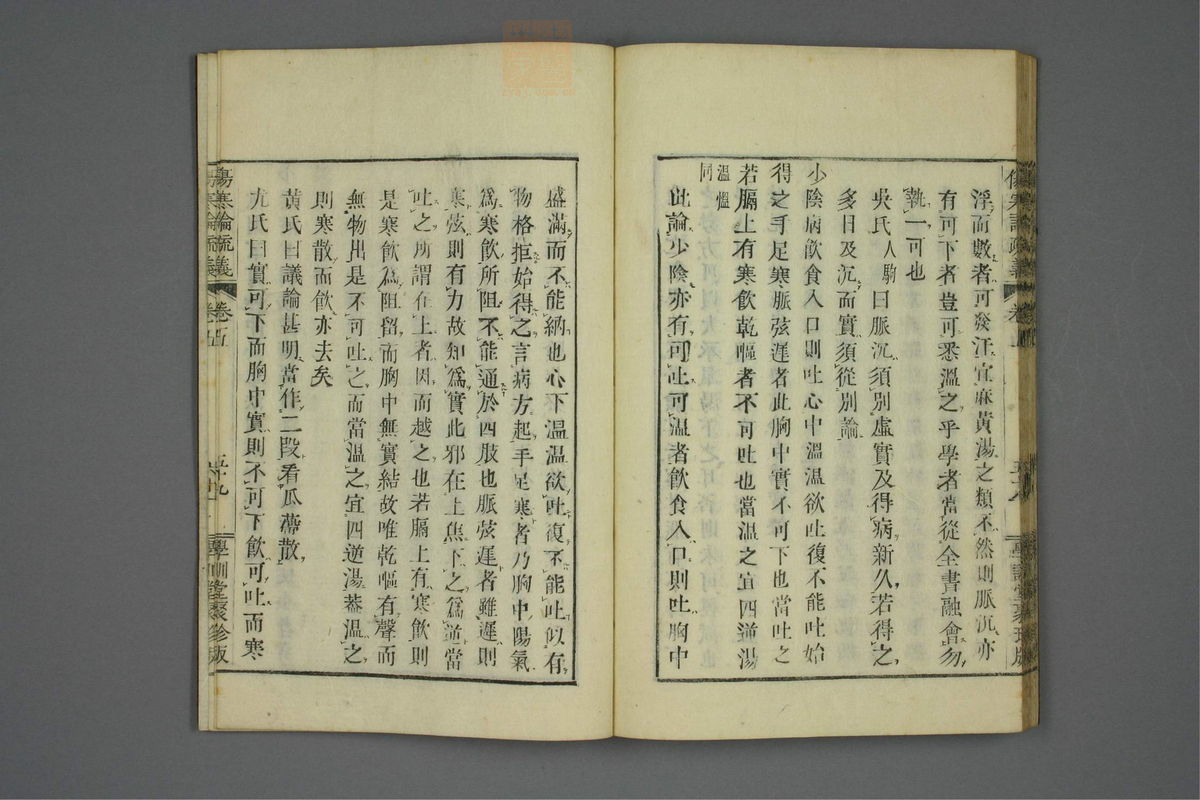 浮而數者可發汗宜麻黃湯之類不然則脈沉亦
有可下者豈可悉溫之乎學者當從全書融會勿
執一可也
吳氏人駒曰脈沉須別虛實及得病新久若得之
多日及沉而實須從別論
少陰病飲食入口則吐心中溫溫欲吐復不能吐始
得之手足寒脈弦遲者此胸中實不可下也當吐之
若膈上有寒飲乾嘔者不可吐也當溫之宜四逆湯
溫慍
同
此論少陰亦有可吐可溫者飲食入口則吐胸中
盛滿而不能納也心下溫溫欲吐復不能吐似有
物格拒始得之言病方起手足寒者乃胸中陽氣
為寒飲所阻不能通於四肢也脈弦遲者雖遲則
寒弦則有力故知為實此邪在上焦下之為逆當
吐之所謂在上者因而越之也若膈上有寒飲則
是寒飲為阻留而胸中無實結故唯乾嘔有聲而
無物出是不可吐之而當溫之宜四逆湯蓋溫之
則寒散而飲亦去矣
黃氏曰議論甚明當作二段看瓜蒂散
尤氏曰實可下而胸中實則不可下飲可吐而寒
傷寒論疏義
卷五
五十九
學訓堂聚珍版